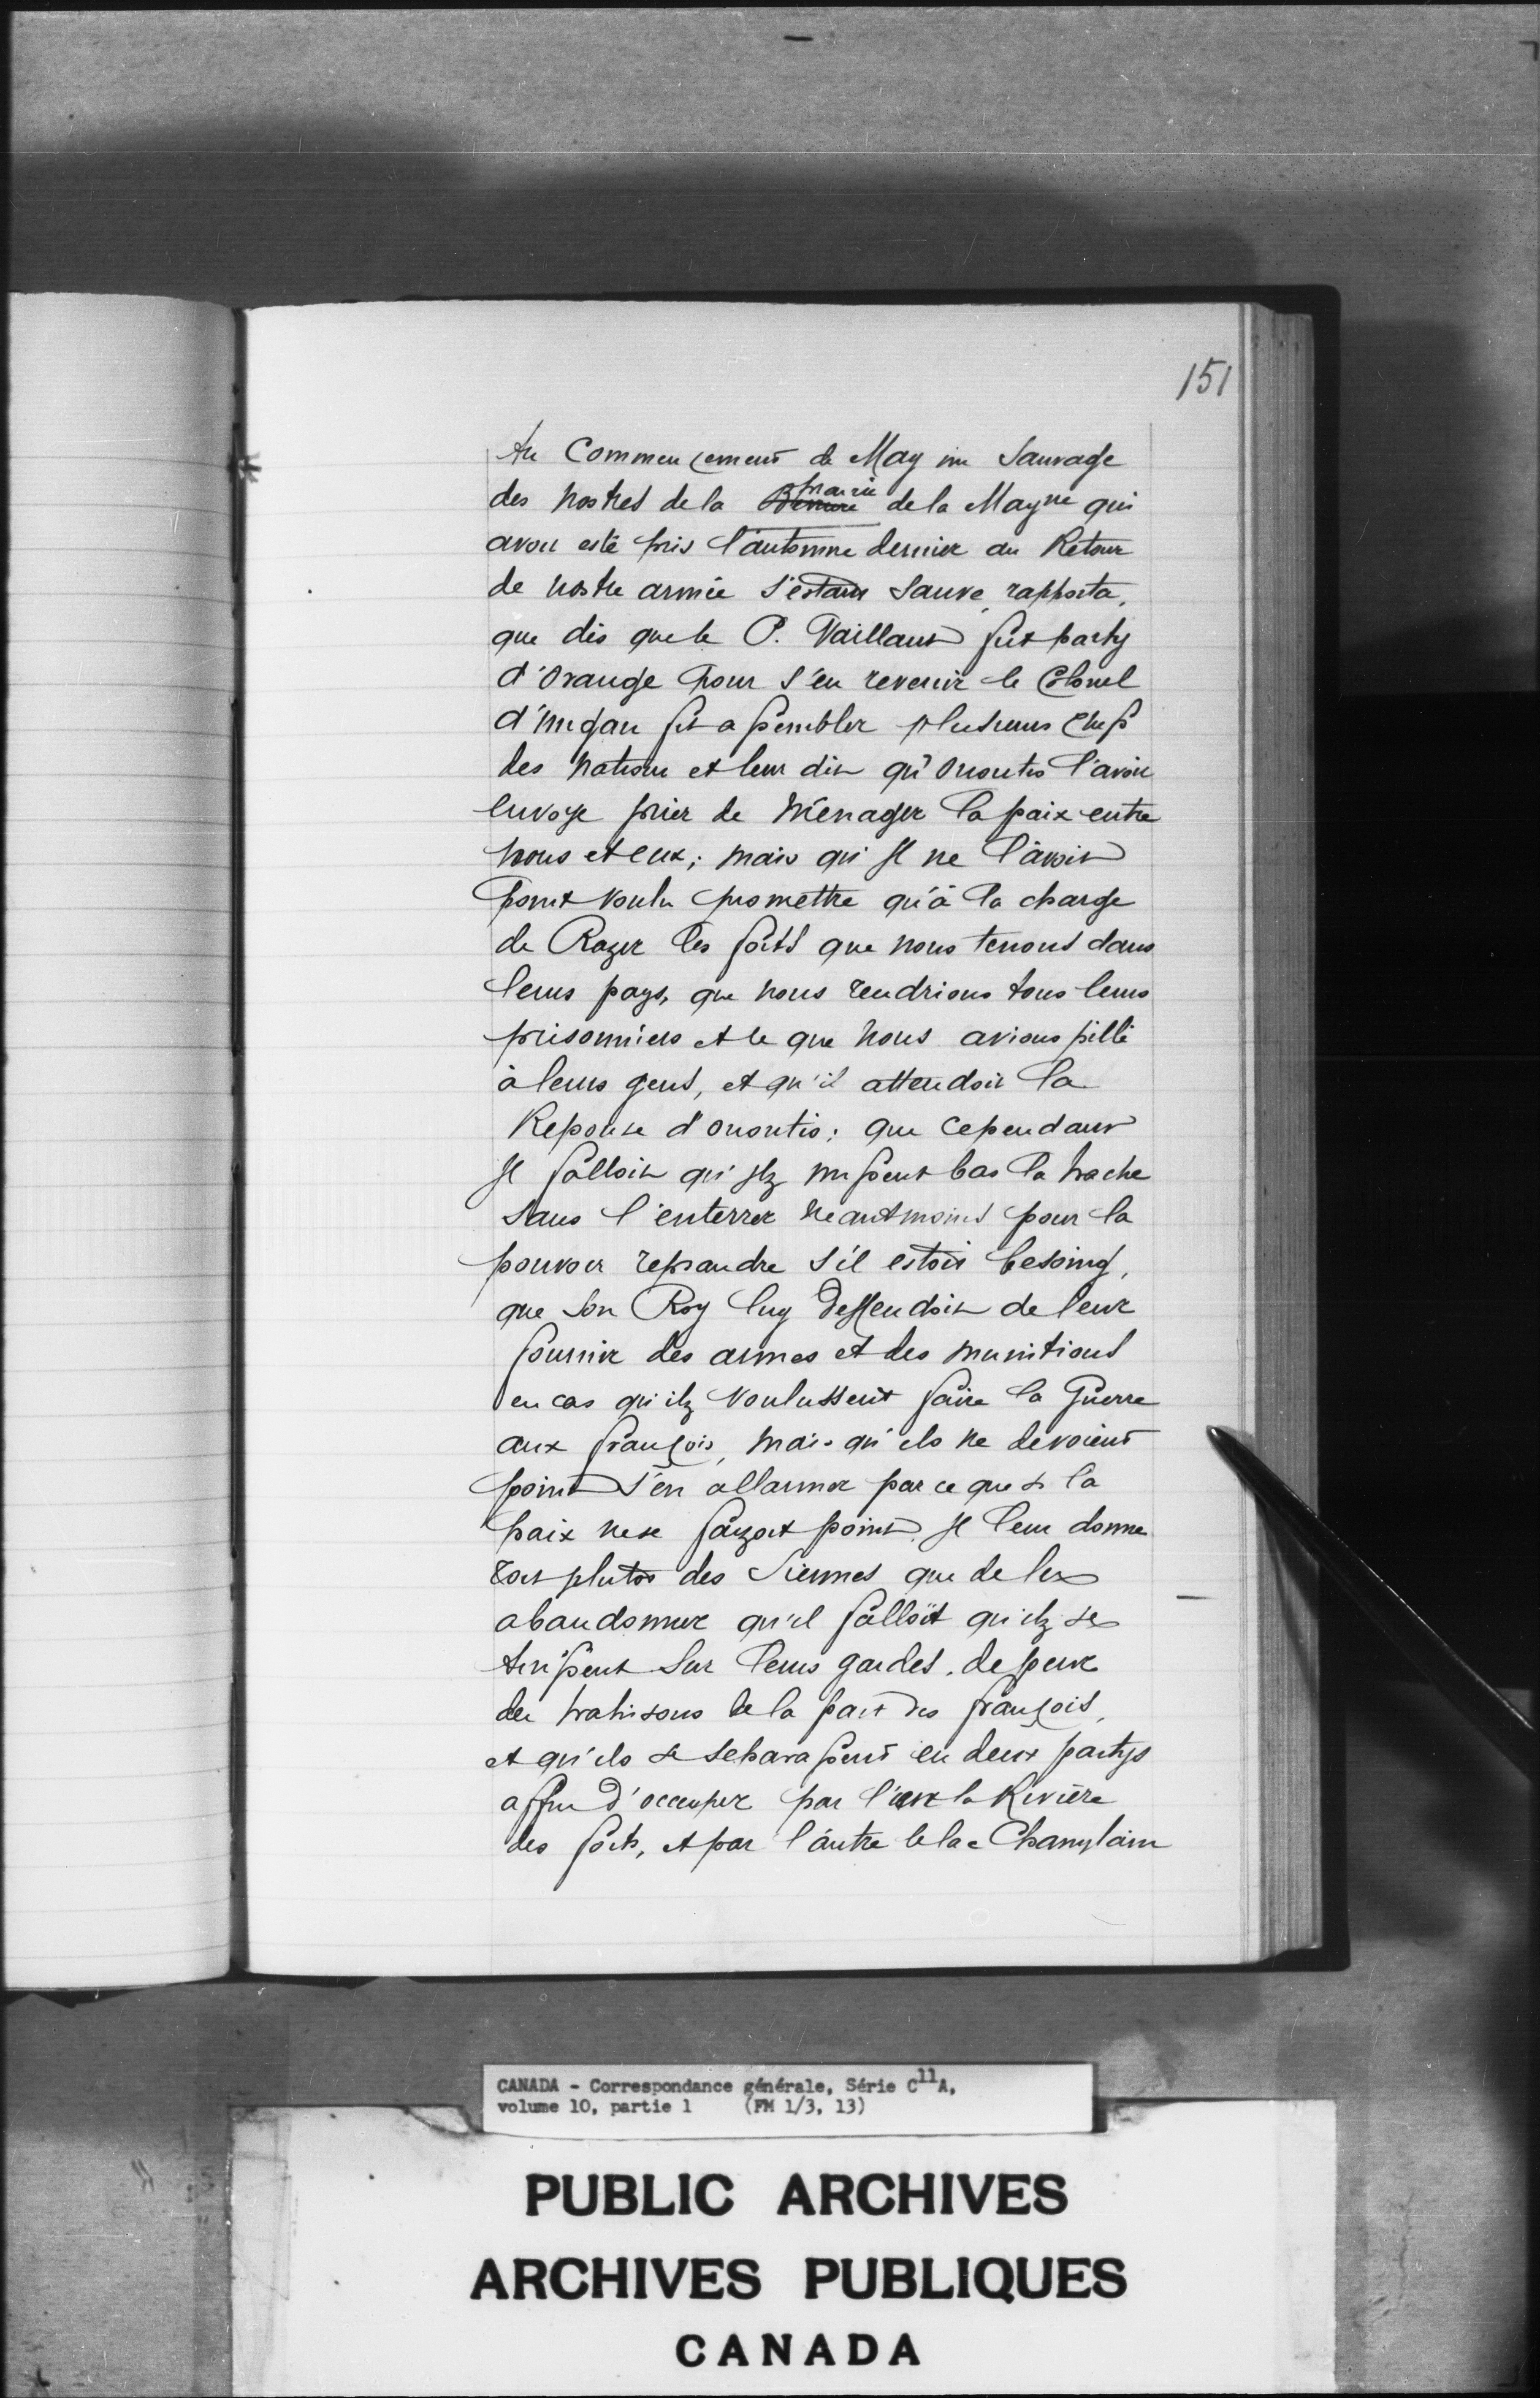 151
Au Commencement de May un Sauvage
des nostres de la prairie de la Magne qui
avoit esté pris l'automne dernier au Retour
de nostre armée s'estant sauvé, rapporta,
que dès que le P. Vaillant fut party
d'Orange pour s'en revenir le Colonel
d'Ungan fit assembler plusieurs chefs
des nations et leur dit qu'Onontio l'avoit
envoyé prier de ménager la paix entre
nous et eux; mais qu'Il ne l'avoit
point voulu promettre qu'à la charge
de Razer les forts que nous tenons dans
leurs pays, que nous rendrions tous leurs
prisonniers et ce que nous avions pillé
à leurs gens, et qu'il attendoit la
Reponse d'onontio; que cependant
Il falloit qu'Ilz missent bas la hache
sans l'enterrer neantmoins pour la
pouvoir reprandre s'il estoit besoing,
que son Roy luy deffendoit de leur
fournir des armes et des munitions
en cas qu'ilz voulussent faire la Guerre
aux françois, mais qu'ils ne devoient
point s'en allarmer par ce que si la
paix ne se faizoit point Il leur donne
roit plutos des siennes que de les
abandonner qu'il falloit qu'ilz se
tinssent sur leurs gardes, de peur
de trahisons de la part des françois,
et qu'ils se separassent en deux partys
affin d'occuper par l'un la Rivière
des forts, et par l'autre le lac Champlain
CANADA - Correspondance générale, Série C11A,
volume 10, partie 1 (FM 1/3, 13)
PUBLIC ARCHIVES
ARCHIVES PUBLIQUES
CANADA